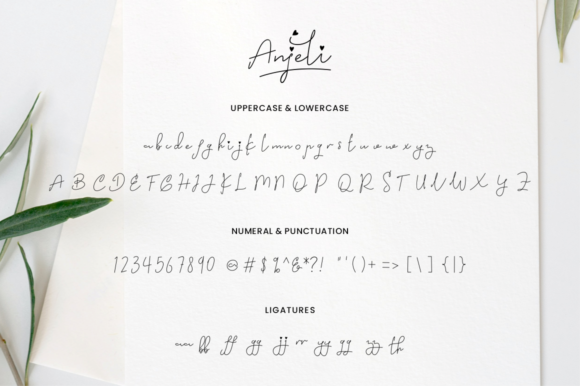 Anjeli
UPPERCASE & LOWERCASE
abcdefghijklmnopqrstuvwxyz
ABCDEFGHIJKLMNOPQRSTUVWXYZ
NUMERAL & PUNCTUATION
1234567890 @#$%^&*?! "'()+=>[\]{|}
LIGATURES
bb ff gg jj rr yy qq zz th